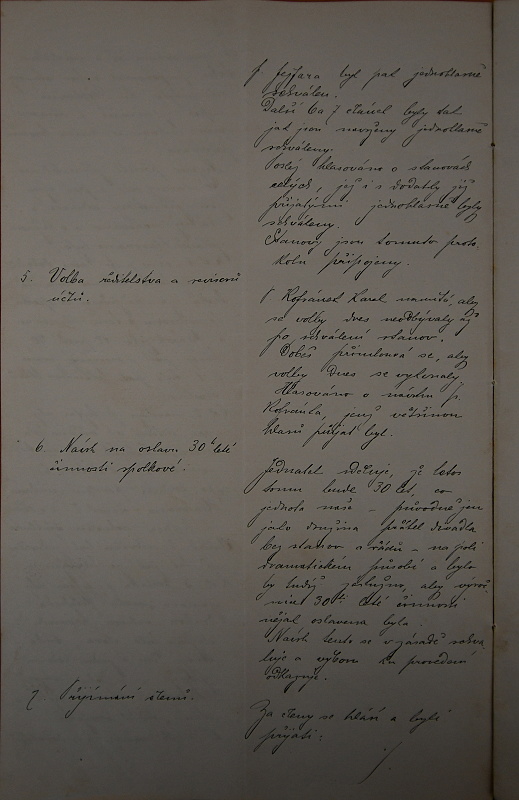 p. Fejfara byl pak jednohlasně
schválen.
Další 6 a 7 článek byly tak
jak jsou navrženy jednohlasně
schváleny.
Poslěj hlasováno o stanovách
celých, jež i s dodatky její
přijatými jednohlasně byly
schváleny.
Stanovy jsou tomuto proto-
kolu připojeny.
5. Volba ředitelstva a revisorů
účtů.
p Kofránek Karel namítá, aby
se volby dnes neodbývaly až
po schválení stanov.
Dobeš přimlouvá se, aby
volby dnes se vykonaly.
Hlasováno o návrhu p.
Kofránka, jenž většinou
hlasů přijat byl.
6. Návrh na oslavu 30ti leté
činnosti spolkové.
Jednatel sděluje, že letos
tomu bude 30 let, co
jednota naše – původně jen
jako družina přátel divadla
bez stanov a řádů – na poli
dramatickém působí a bylo
by tudíž záslužno, aby výroč
30ti leté činnosti
nějak oslavena byla.
Návrh tento se v zásadě schva
luje a výboru ku provedení
odkazuje.
7. Přijímání členů.
Za členy se hlásí a byli
přijati: